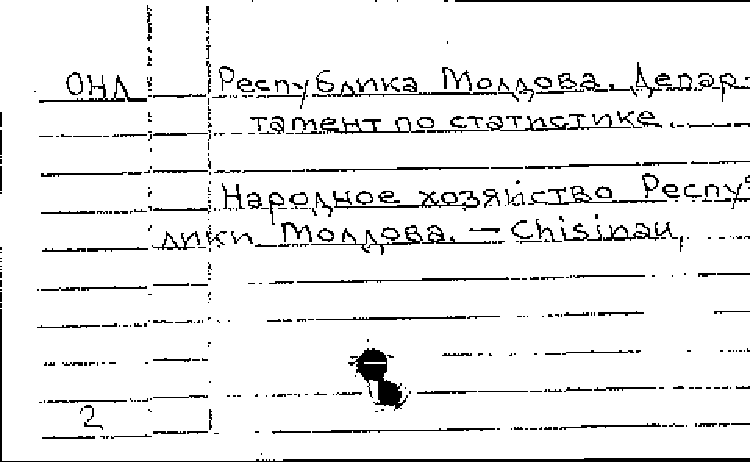 ОНЛ Республика Молдова. Депар-
тамент по статистике.
Народное хозяйство Респуб
лики Молдова. — Chisinau,
2